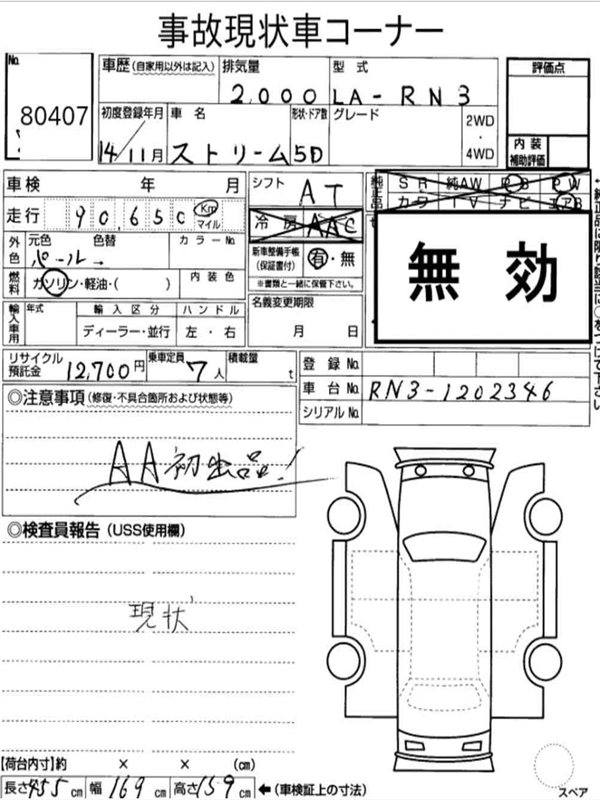 事故現状車コーナー
No. 80407
車歴 (自家用以外は記入) 排気量 2,000 型式 LA-RN3
評価点
初度登録年月 14/11月 車名 ストリーム 形状・ドア数 5D グレード 2WD・4WD
内装補助評価
車検 年 月 シフト AT
純正品 SR 純AW PS PW
カワ TV ナビ エアB
走行 90,650 Km マイル 冷房 AAC
外色 元色 色替 カラーNo. パール→
新車整備手帳(保証書付) 有・無
※書類と一緒に保管下さい。
無効
燃料 ガソリン・軽油・( ) 内装色
輸入車用 年式 輸入区分 ハンドル 名義変更期限
ディーラー・並行 左・右 月 日
リサイクル預託金 12,700円 乗車定員 7人 積載量 t
登録No.
車台No. RN3-1202346
シリアルNo.
◎注意事項(修復・不具合箇所および状態等)
AA初出品!
◎検査員報告(USS使用欄)
現状
【荷台内寸】約 × × (cm)
長さ455cm 幅169cm 高さ159cm ←(車検証上の寸法)
スペア